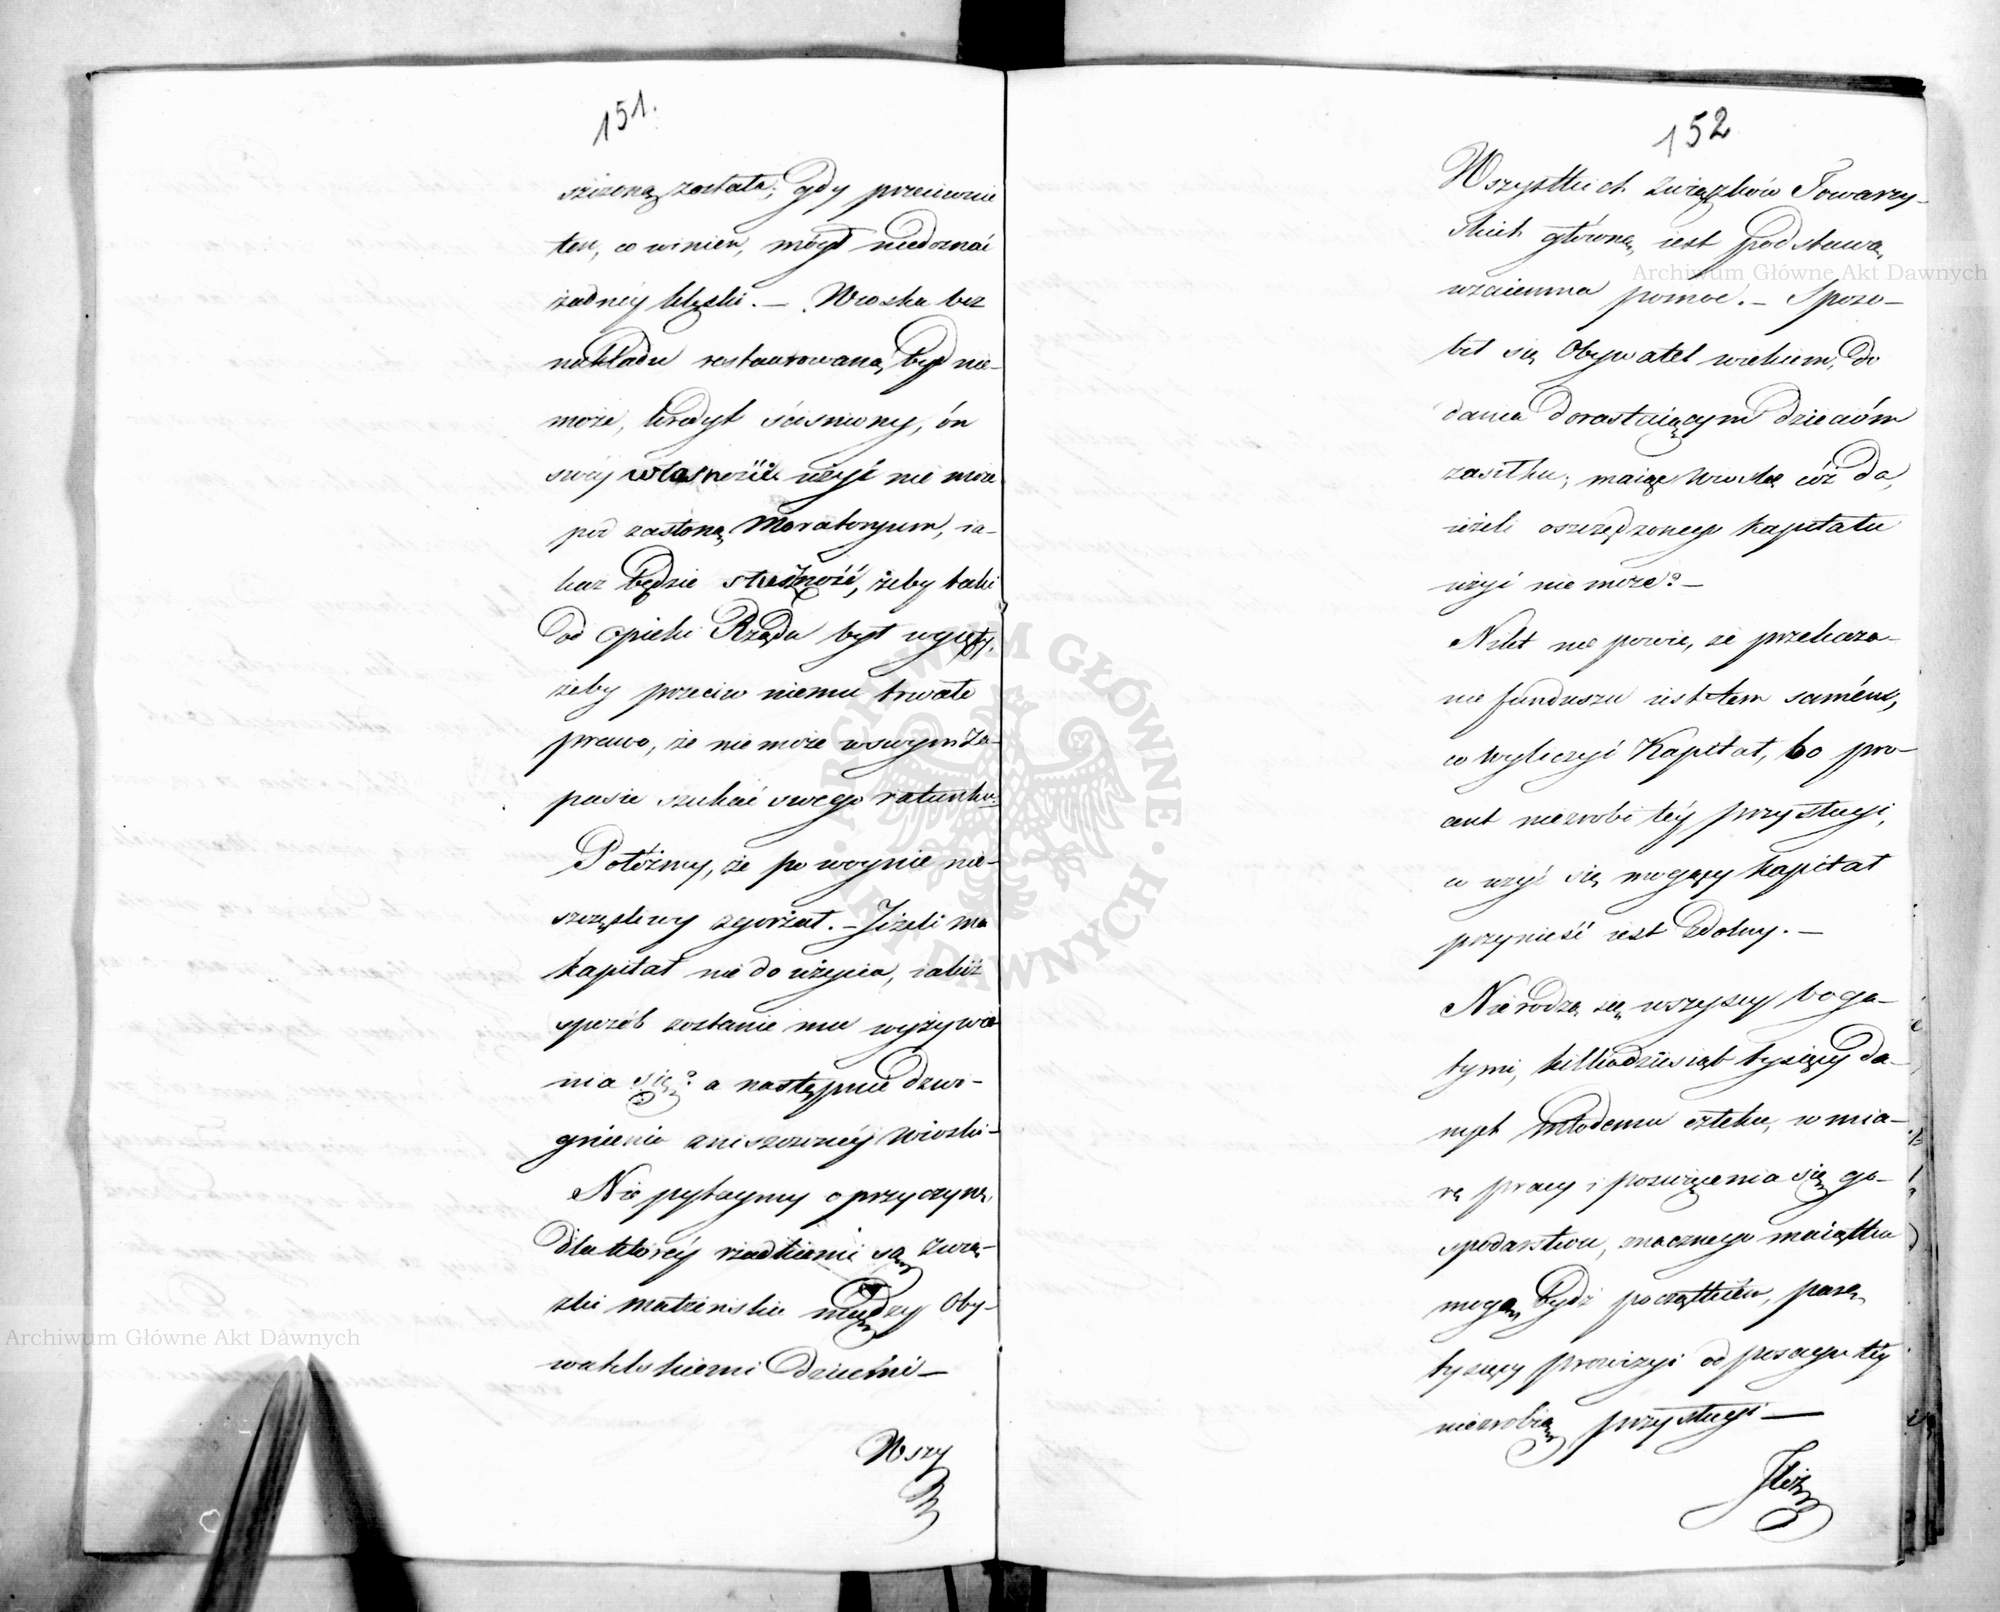 151.
szczoną została; gdy przeciwnie
ten, co winien, mógł niedoznać
żadnéy klęski. — Wioska bez
nakładu restaurowaną być nie-
może, kredyt ściśniony, ón
swéy własności użyć nie może
pod zasłoną Moratoryum, ia-
każ będzie słuszność, żeby taki
od opieki Rządu był wyięty,
żeby przeciw niemu trwało
prawo, że nie może w swym za-
pasie szukać swego ratunku.
Połóżmy, że po woynie nie-
szczęśliwy zgorzał. — Jeżeli ma
kapitał nie do użycia, iakiż
sposób zostanie mu wyżywie
nia się? a następnie dzwi-
gnienia zniszczonéy wioski —
Nie pytaymy o przyczynę,
dla któréy rzadkiemi są zwią-
zki małżeńskie między Oby-
watelskiemi dziećmi —
Wszy
152
Wszystkich związków Towarzy-
skich główną iest podstawą,
wzaiemna pomoc. — Sposo-
bił się Obywatel wiekiem, do
dania dorastaiącym dzieciom
zasiłku; maiąc wioskę cóż da,
ieżeli oszczędzonego kapitału
użyć nie może? —
Nikt nie powie, że przekaza-
nie funduszu iest tem samém,
co wyliczyć Kapitał, bo pro-
cent niezrobi téy przysługi,
co użyć się mogący kapitał
przynieść iest zdolny. —
Nie rodzą się wszyscy boga-
tymi, kilkadziesiąt tysięcy da-
nych młodemu człeku, w mia-
rę pracy i poświęcenia się go-
spodarstwu, znacznego maiątku
mogą bydź początkiem, parę
tysięcy prowizyi od posagu téy
niezrobią przysługi —
Archiwum Główne Akt Dawnych
Archiwum Główne Akt Dawnych
ARCHIWUM GŁÓWNE · AKT DAWNYCH ·